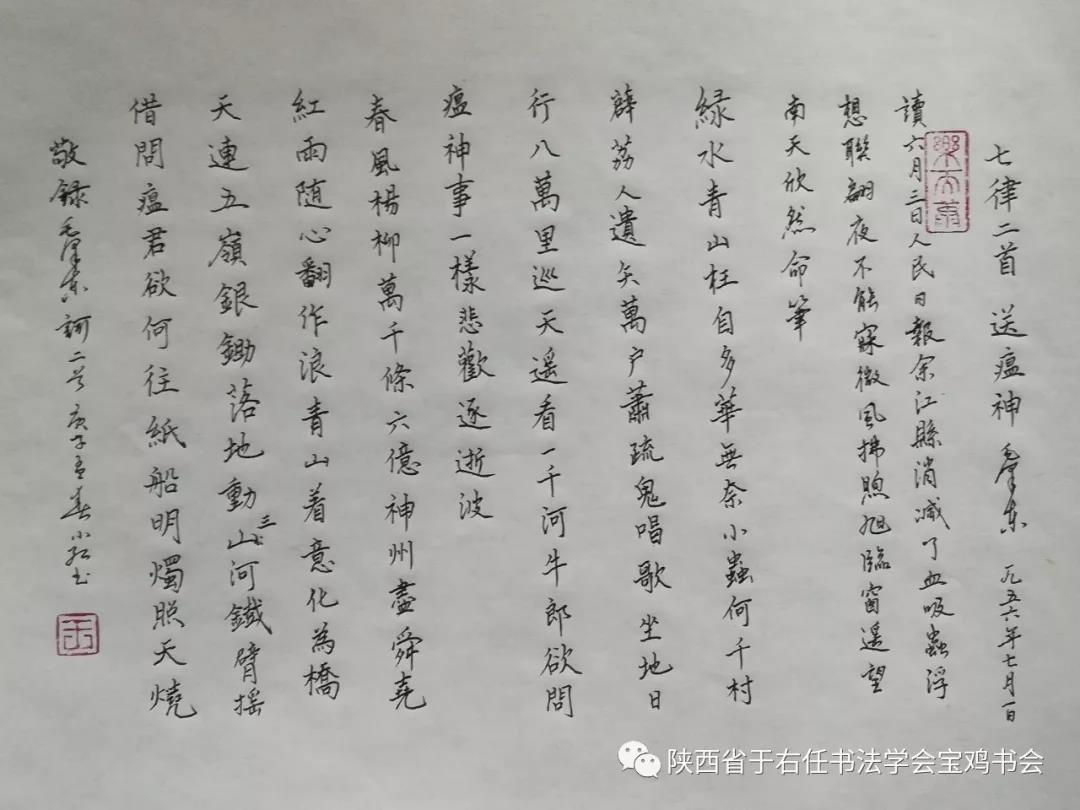 七律二首 送瘟神 毛澤東 一九五六年七月一日
讀六月三日人民日報余江縣消減了血吸蟲浮
想聯翩夜不能寐微風拂煦旭臨窗遥望
南天欣然命筆
緑水青山枉自多華無奈小蟲何千村
薜荔人遺矢萬户蕭疏鬼唱歌坐地日
行八萬里巡天遥看一千河牛郎欲問
瘟神事一樣悲歡逐逝波
春風楊柳萬千條六億神州盡舜堯
紅雨随心翻作浪青山着意化為橋
天連五嶺銀鋤落地動三山河鐵臂摇
借問瘟君欲何往紙船明燭照天燒
敬録毛澤東詞二首庚子孟春小紅書
陕西省于右任书法学会宝鸡书会